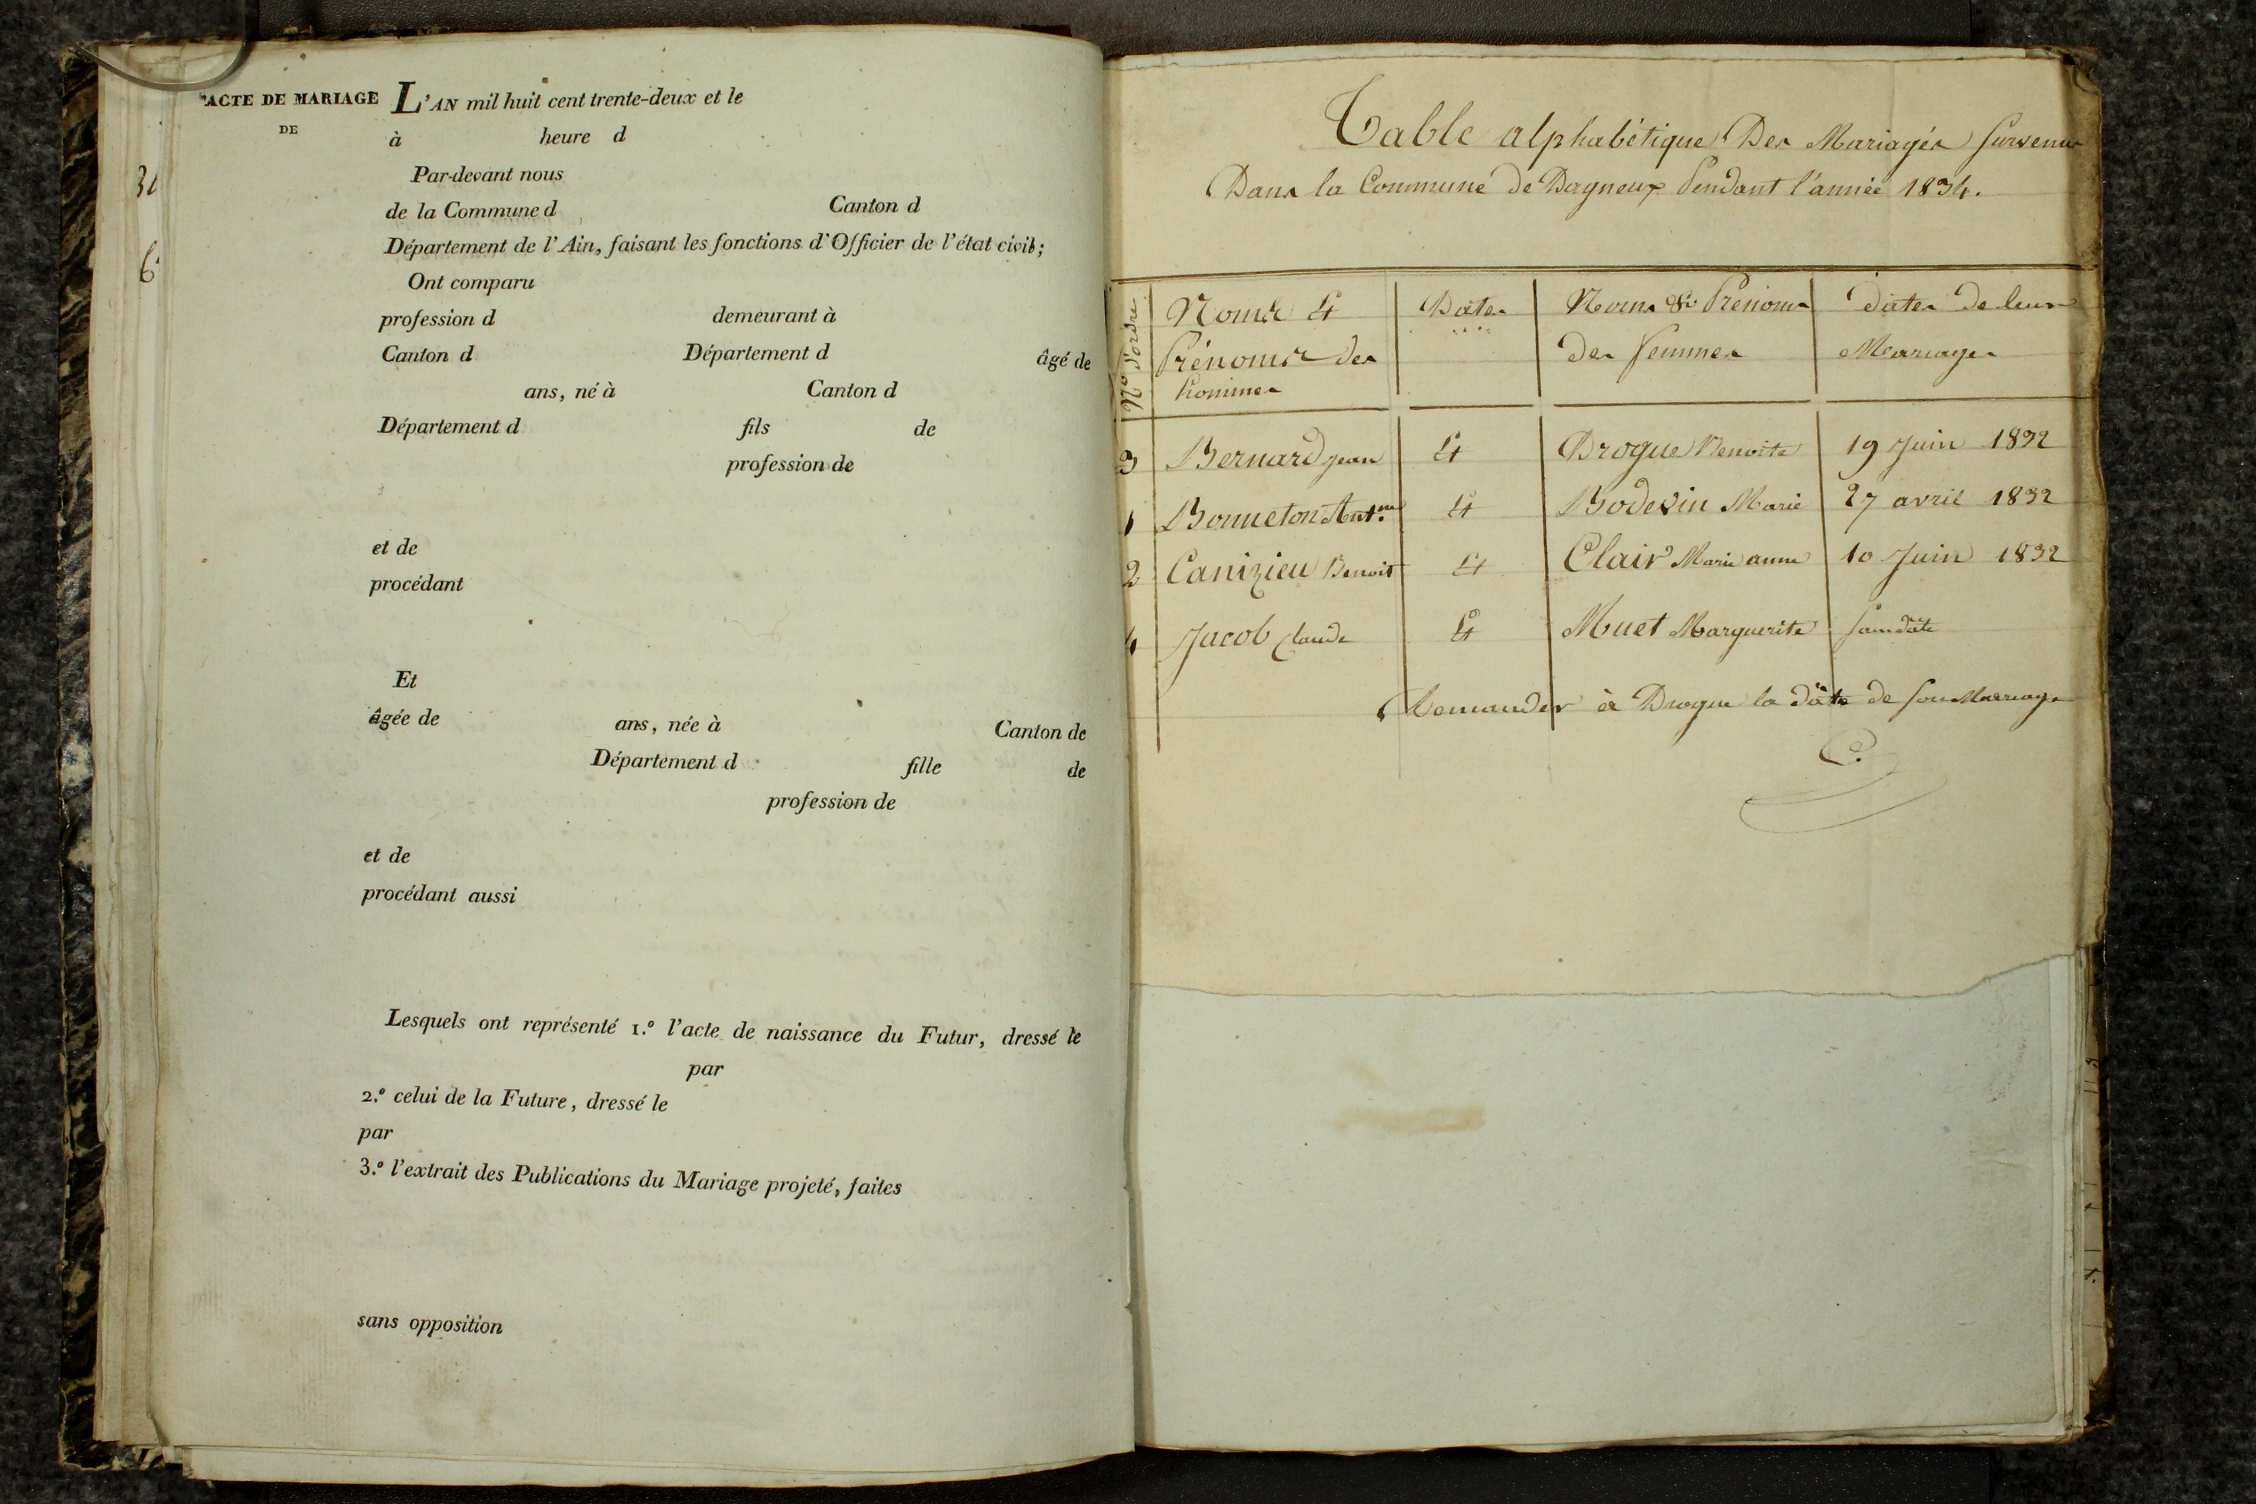 ACTE DE MARIAGE
DE
L'AN mil huit cent trente-deux et le
à heure d
Par-devant nous
de la Commune d Canton d
Département de l'Ain, faisant les fonctions d'Officier de l'état civil;
Ont comparu
profession d demeurant à
Canton d Département d âgé de
ans, né à Canton d
Département d fils de
profession de
et de
procédant
Et
âgée de ans, née à Canton de
Département d fille de
profession de
et de
procédant aussi
Lesquels ont représenté 1.º l'acte de naissance du Futur, dressé le
par
2.º celui de la Future, dressé le
par
3.º l'extrait des Publications du Mariage projeté, faites
sans opposition
Table alphabétique Des Mariages Survenus
Dans la Commune de Dagneux Pendant l'année 1834.
Nº D'ordre
Noms Et Prénoms des hommes
Dates
Noms & Prénoms des femmes
dates de leurs Mariages
3 Bernard jean Et Drogue Benoite 19 Juin 1832
1 Bonneton Ant.ne Et Bodevin Marie 27 avril 1832
2 Canizieu Benoit Et Clair Marie anne 10 Juin 1832
4 Jacob Claude Et Muet Marguerite Sans date
Demander à Drogue la date de son Mariage